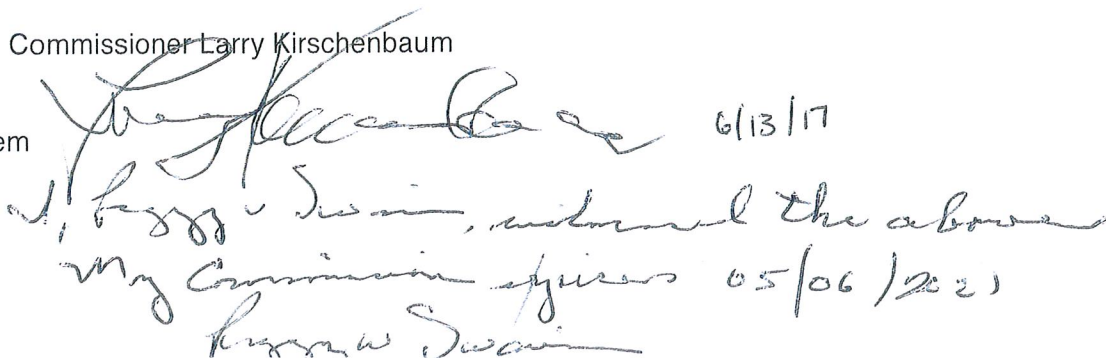 Commissioner Larry Kirschenbaum
6/13/17
em
I, Peggy W Swain, witnessed the above
My Commission expires 05/06/2021
Peggy W Swain